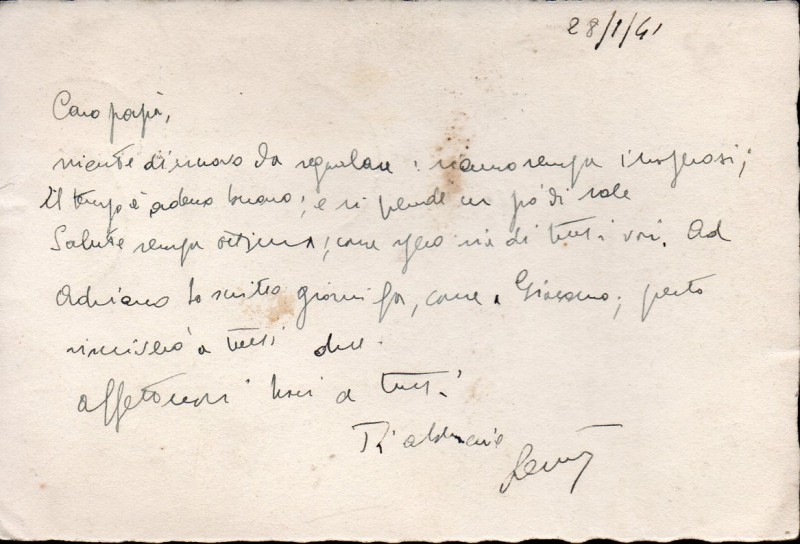 28/1/41
Caro papà,
niente di nuovo da segnalare: siamo sempre
il tempo è adesso buono; e si prende un pò di sole
Salute sempre ottima; come spero sia di tutti voi. Ad
Adriano ho scritto giorni fa, come a Giacomo; presto
riscriverò a tutti e due.
affettuosi baci a tutti
Ti abbraccia